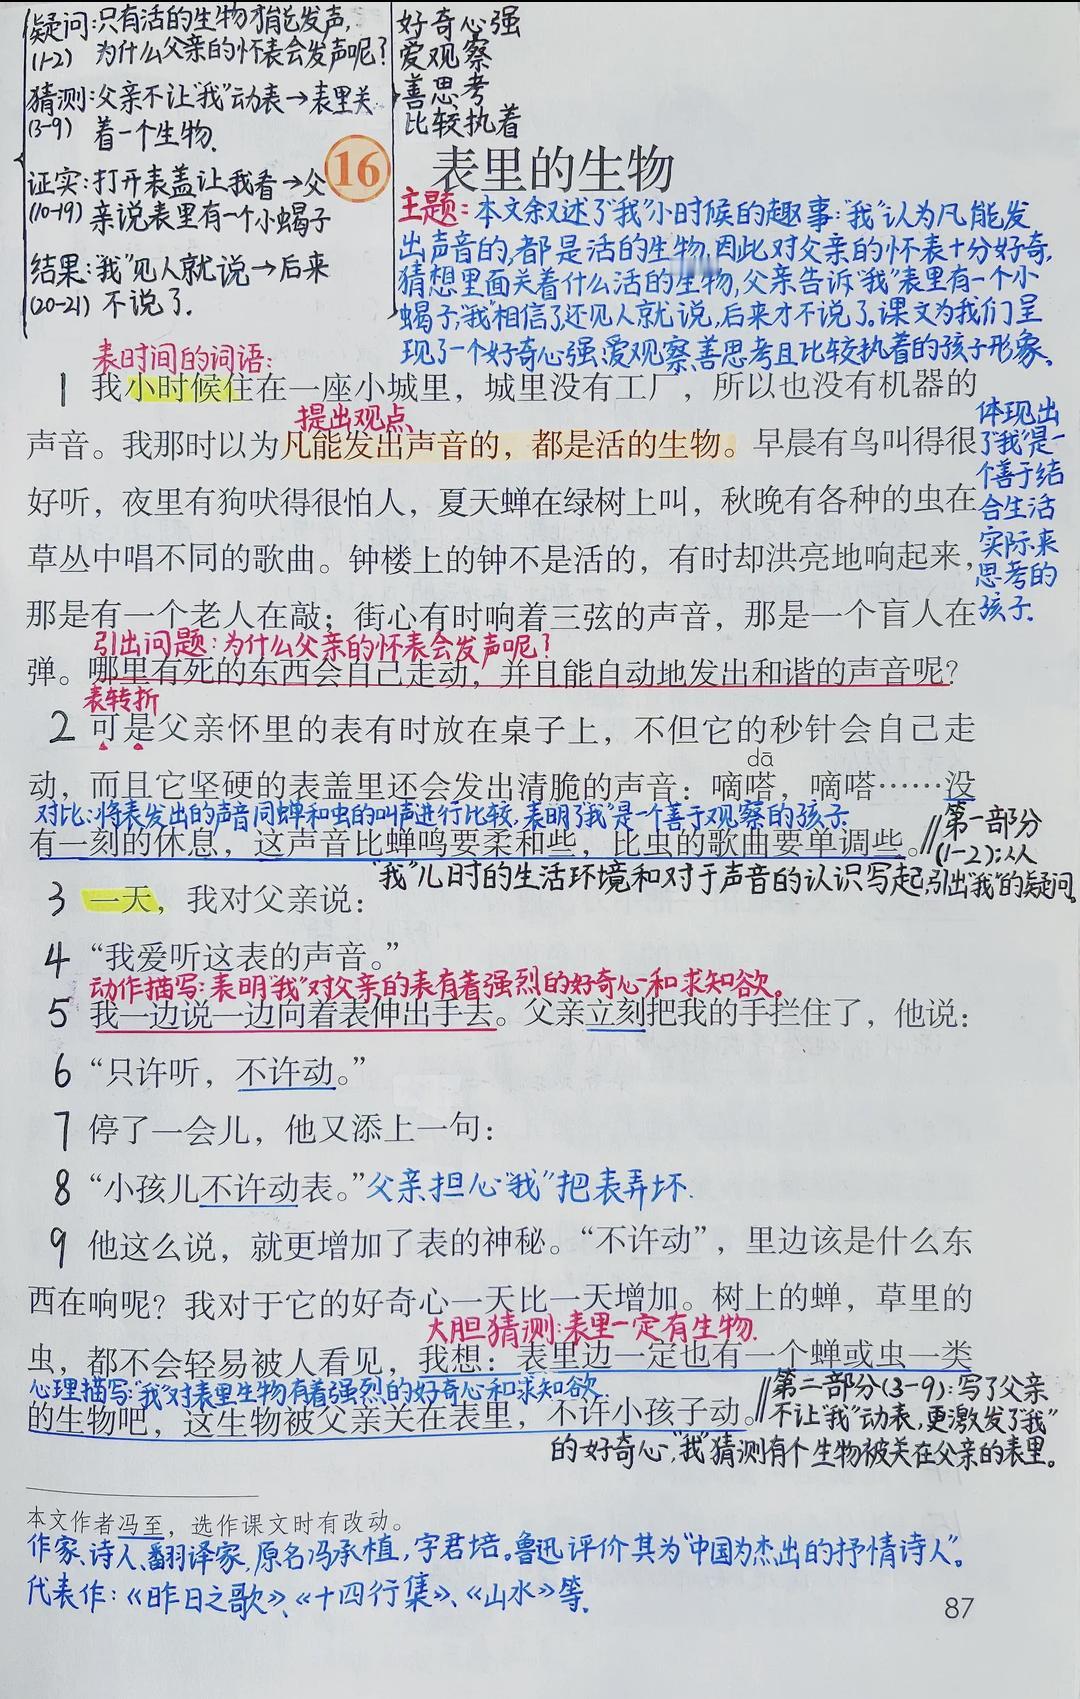 疑问:只有活的生物才能发声,
(1-2) 为什么父亲的怀表会发声呢?
猜测:父亲不让"我"动表→表里关
(3-9) 着一个生物.
证实:打开表盖让我看→父
(10-19) 亲说表里有一个小蝎子
结果:"我"见人就说→后来
(20-21) 不说了.
好奇心强
爱观察
善思考
比较执着
16 表里的生物
主题:本文叙述了"我"小时候的趣事:"我"认为凡能发
出声音的,都是活的生物,因此对父亲的怀表十分好奇,
猜想里面关着什么活的生物,父亲告诉"我"表里有一个小
蝎子,"我"相信了,还见人就说,后来才不说了。课文为我们呈
现了一个好奇心强、爱观察、善思考且比较执着的孩子形象。
表时间的词语:
1 我小时候住在一座小城里，城里没有工厂，所以也没有机器的
提出观点
声音。我那时以为凡能发出声音的，都是活的生物。早晨有鸟叫得很
好听，夜里有狗吠得很怕人，夏天蝉在绿树上叫，秋晚有各种的虫在
草丛中唱不同的歌曲。钟楼上的钟不是活的，有时却洪亮地响起来，
那是有一个老人在敲；街心有时响着三弦的声音，那是一个盲人在
体现出
了"我"是一
个善于结
合生活
实际来
思考的
孩子.
引出问题:为什么父亲的怀表会发声呢?
弹。哪里有死的东西会自己走动，并且能自动地发出和谐的声音呢？
表转折
2 可是父亲怀里的表有时放在桌子上，不但它的秒针会自己走
dā
动，而且它坚硬的表盖里还会发出清脆的声音：嘀嗒，嘀嗒……没
对比:将表发出的声音同蝉和虫的叫声进行比较,表明了"我"是一个善于观察的孩子.
有一刻的休息，这声音比蝉鸣要柔和些，比虫的歌曲要单调些。
//第一部分
(1-2):从
"我"儿时的生活环境和对于声音的认识写起,引出"我"的疑问.
3 一天，我对父亲说：
4 “我爱听这表的声音。”
动作描写:表明"我"对父亲的表有着强烈的好奇心和求知欲。
5 我一边说一边向着表伸出手去。父亲立刻把我的手拦住了，他说：
6 “只许听，不许动。”
7 停了一会儿，他又添上一句：
8 “小孩儿不许动表。”父亲担心"我"把表弄坏.
9 他这么说，就更增加了表的神秘。“不许动”，里边该是什么东
西在响呢？我对于它的好奇心一天比一天增加。树上的蝉，草里的
大胆猜测:表里一定有生物.
虫，都不会轻易被人看见，我想：表里边一定也有一个蝉或虫一类
心理描写:"我"对表里生物有着强烈的好奇心和求知欲.
的生物吧，这生物被父亲关在表里，不许小孩子动。
//第二部分(3-9):写了父亲
不让"我"动表,更激发了"我"
的好奇心,"我"猜测有个生物被关在父亲的表里。
本文作者冯至，选作课文时有改动。
作家、诗人、翻译家,原名冯承植,字君培。鲁迅评价其为"中国为杰出的抒情诗人"。
代表作:《昨日之歌》、《十四行集》、《山水》等.
87